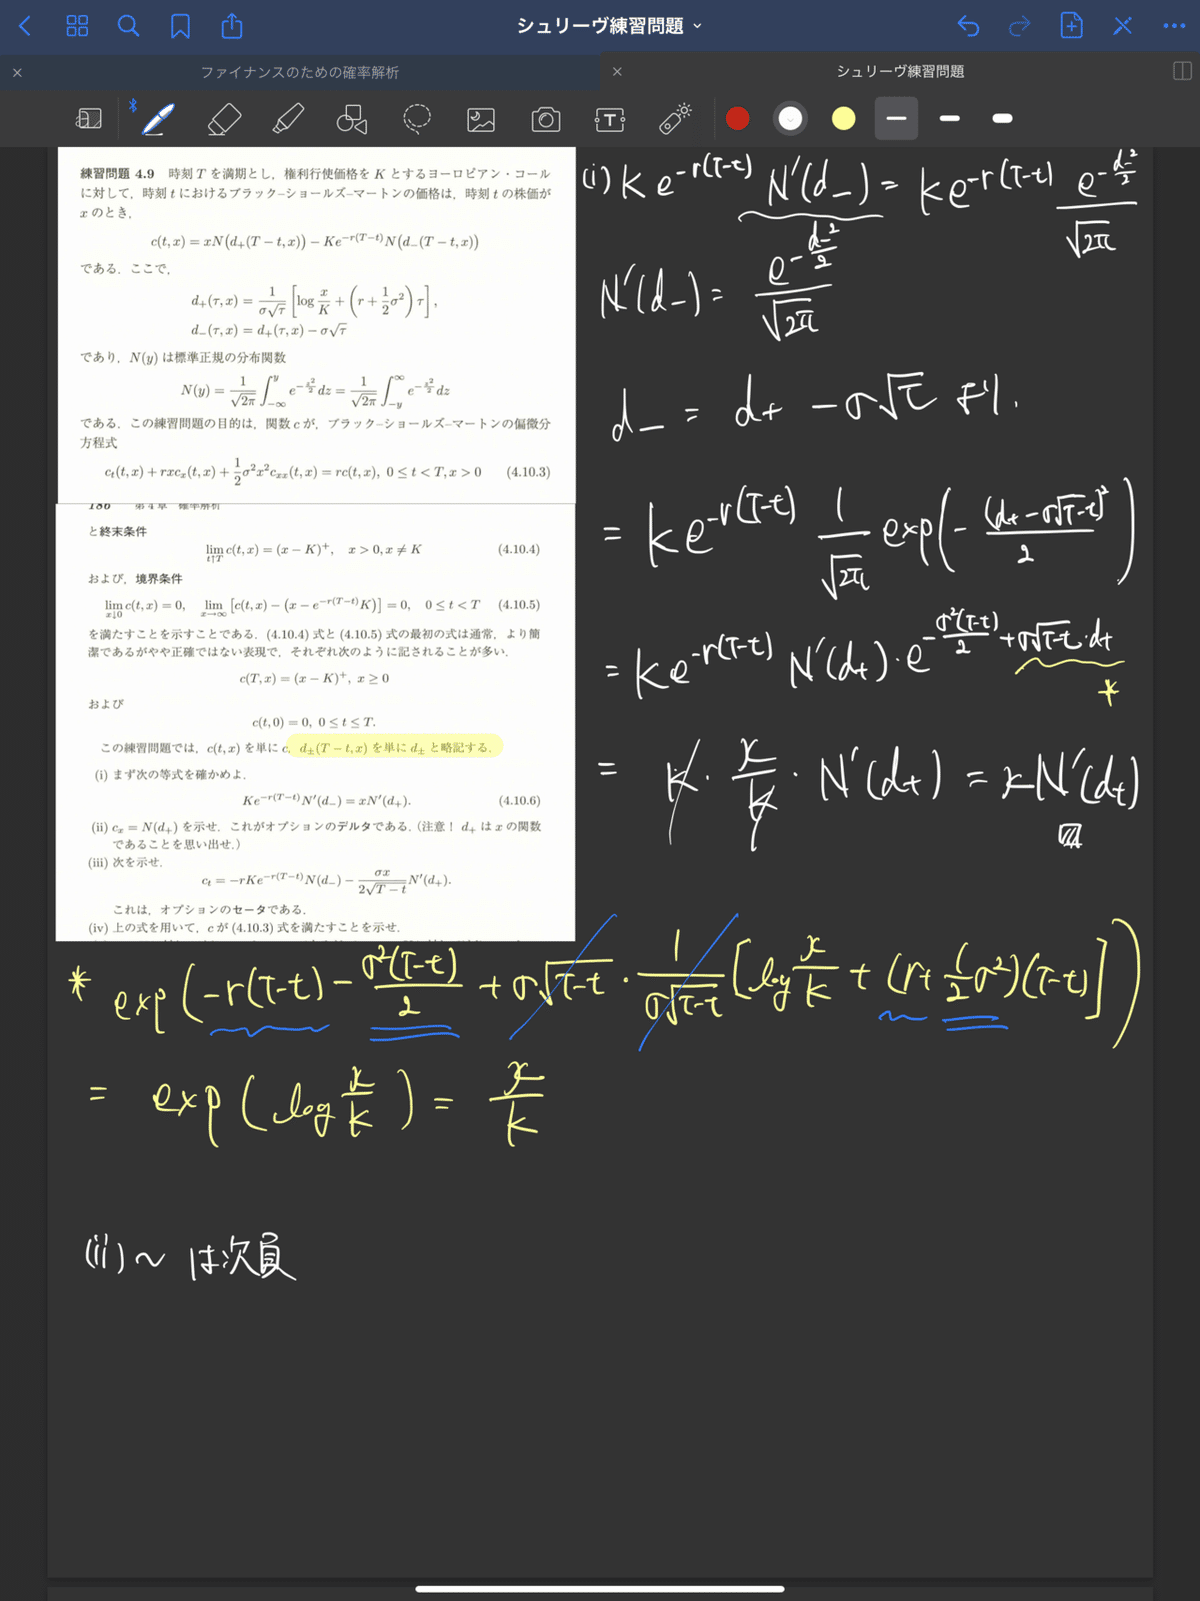 シュリーヴ練習問題
ファイナンスのための確率解析
シュリーヴ練習問題
練習問題 4.9 時刻 T を満期とし，権利行使価格を K とするヨーロピアン・コール
に対して，時刻 t におけるブラック–ショールズ–マートンの価格は，時刻 t の株価が
x のとき，
c(t, x) = xN(d₊(T − t, x)) − Ke^{−r(T−t)}N(d₋(T − t, x))
である．ここで，
d₊(τ, x) = 1/(σ√τ) [log x/K + (r + 1/2 σ²) τ],
d₋(τ, x) = d₊(τ, x) − σ√τ
であり，N(y) は標準正規の分布関数
N(y) = 1/√2π ∫_{−∞}^{y} e^{−z²/2} dz = 1/√2π ∫_{−y}^{∞} e^{−z²/2} dz
である．この練習問題の目的は，関数 c が，ブラック–ショールズ–マートンの偏微分
方程式
c_t(t, x) + rxc_x(t, x) + 1/2 σ²x²c_{xx}(t, x) = rc(t, x), 0 ≤ t < T, x > 0 (4.10.3)
186 第 4 章 確率解析
と終末条件
lim_{t↑T} c(t, x) = (x − K)⁺, x > 0, x ≠ K (4.10.4)
および，境界条件
lim_{x↓0} c(t, x) = 0, lim_{x→∞} [c(t, x) − (x − e^{−r(T−t)}K)] = 0, 0 ≤ t < T (4.10.5)
を満たすことを示すことである．(4.10.4) 式と (4.10.5) 式の最初の式は通常，より簡
潔であるがやや正確ではない表現で，それぞれ次のように記されることが多い．
c(T, x) = (x − K)⁺, x ≥ 0
および
c(t, 0) = 0, 0 ≤ t ≤ T.
この練習問題では，c(t, x) を単に c, d±(T − t, x) を単に d± と略記する．
(i) まず次の等式を確かめよ．
Ke^{−r(T−t)}N′(d₋) = xN′(d₊). (4.10.6)
(ii) c_x = N(d₊) を示せ．これがオプションのデルタである．（注意！ d₊ は x の関数
であることを思い出せ．）
(iii) 次を示せ．
c_t = −rKe^{−r(T−t)}N(d₋) − σx/(2√T − t) N′(d₊).
これは，オプションのセータである．
(iv) 上の式を用いて，c が (4.10.3) 式を満たすことを示せ．
(i) Ke^{-r(T-t)} N′(d₋) = Ke^{-r(T-t)} e^{-d₋²/2}/√2π
N′(d₋) = e^{-d₋²/2}/√2π
d₋ = d₊ − σ√τ より.
= Ke^{-r(T-t)} 1/√2π exp(− (d₊ − σ√T-t)²/2)
= Ke^{-r(T-t)} N′(d₊)・e^{-σ²(T-t)/2 + σ√T-t・d₊}
*
= K・x/K・N′(d₊) = xN′(d₊)
* exp(−r(T-t) − σ²(T-t)/2 + σ√T-t・1/(σ√T-t) [log x/K + (r + 1/2 σ²)(T-t)])
= exp(log x/K) = x/K
(ii) ~ は次頁